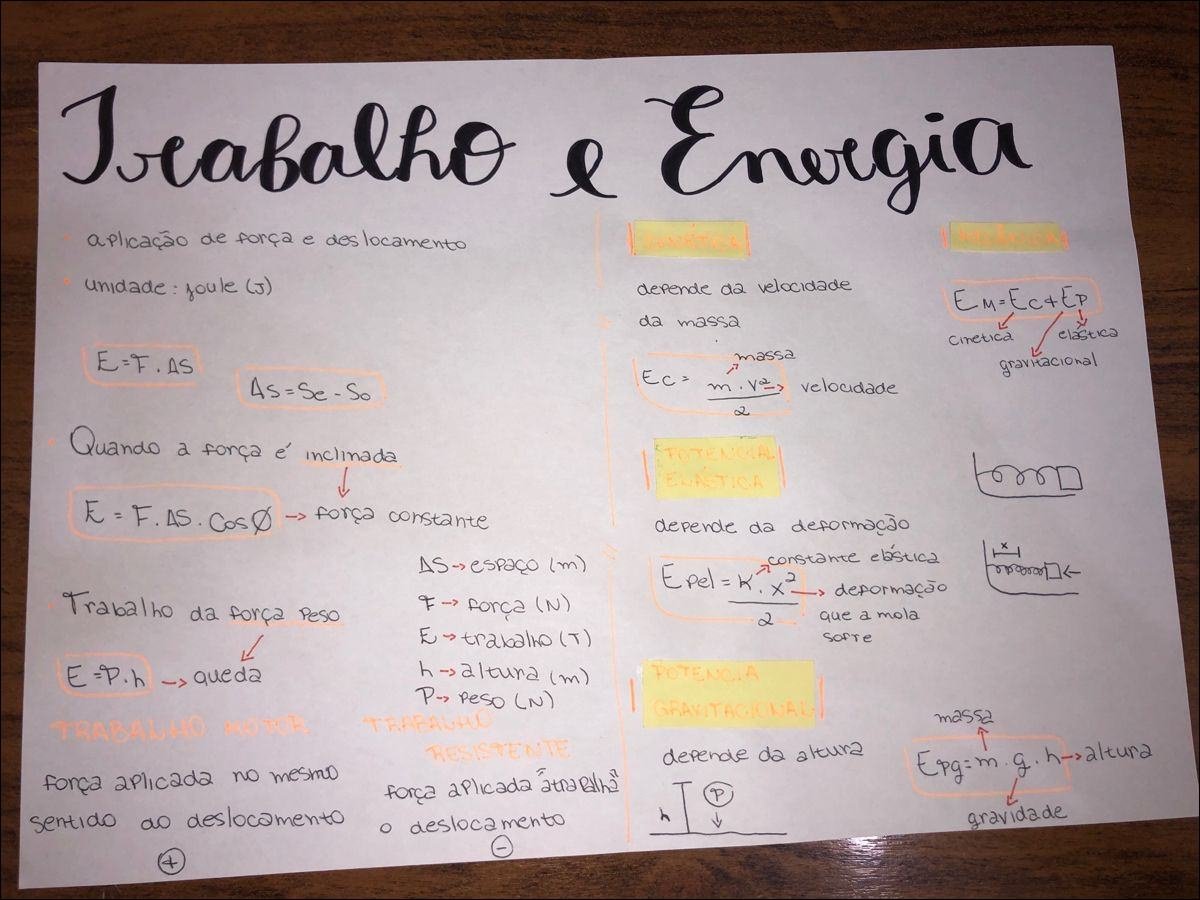 Trabalho e Energia
• aplicação de força e deslocamento
• unidade: joule (J)
E = F . ΔS
ΔS = Se - So
• Quando a força é inclinada
E = F. ΔS. Cos Ø → força constante
ΔS → espaço (m)
F → força (N)
E → trabalho (T)
h → altura (m)
P → peso (N)
• Trabalho da força Peso
E = P.h → queda
TRABALHO MOTOR
força aplicada no mesmo
sentido ao deslocamento
+
TRABALHO
RESISTENTE
força aplicada "atrapalha"
o deslocamento
-
CINÉTICA
depende da velocidade
da massa
massa
Ec = m . v² → velocidade
2
POTENCIAL
ELÁSTICA
depende da deformação
constante elástica
Epel = K . x² → deformação
2
que a mola
sofre
POTENCIA
GRAVITACIONAL
depende da altura
h
P
MECÂNICA
EM = EC + EP
cinética
elástica
gravitacional
x
massa
Epg = m . g . h → altura
gravidade